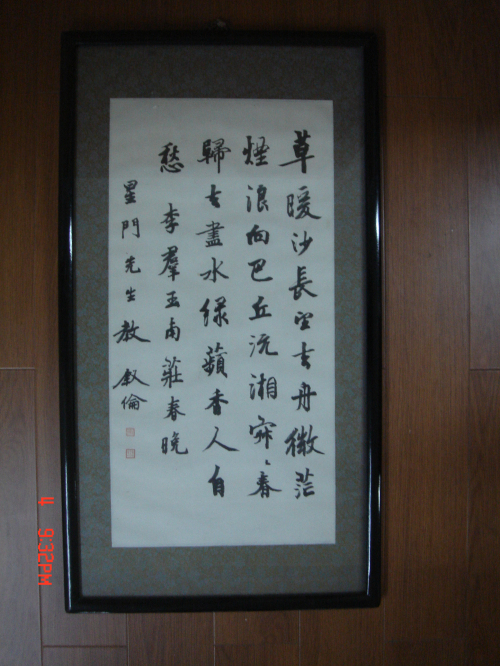 草暖沙長望去舟微茫
煙浪向巴丘沅湘寂〻春
歸去盡水綠蘋香人自
愁 李羣玉南莊春晚
星門先生教 叙倫
4 9:32PM